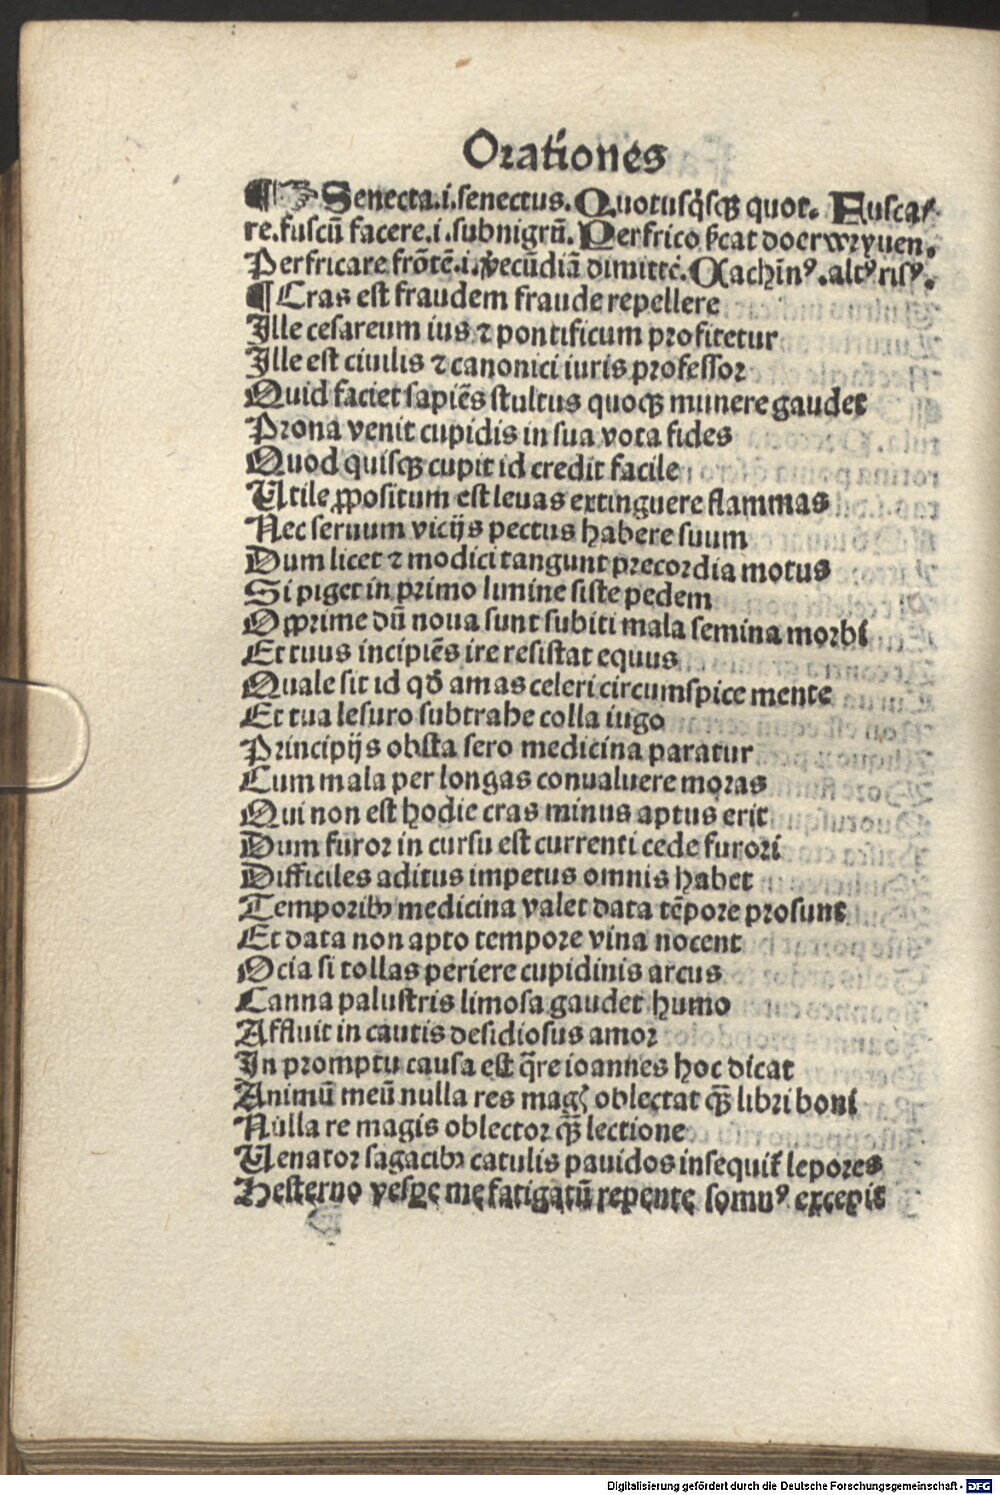 Orationes
¶ ☞ Senecta.i.senectus. Quotusq̃sqꝫ quot. Fusca⸗
re.fuscū facere.i.subnigrū. Perfrico
Perfricare frōtē.i.verecūdiā dimitte. Cachinꝰ.altꝰ risꝰ.
¶ Cras est fraudem fraude repellere
Ille cesareum ius ⁊ pontificum profitetur
Ille est ciuilis ⁊ canonici iuris professor
Quid faciet sapiēs stultus quoqꝫ munere gaudet
Prona venit cupidis in sua vota fides
Quod quisqꝫ cupit id credit facile
Utile ꝓpositum est leuas extinguere flammas
Nec seruum vicijs pectus habere suum
Dum licet ⁊ modici tangunt precordia motus
Si piget in primo limine siste pedem
Opprime dū noua sunt subiti mala semina morbi
Et tuus incipiēs ire resistat equus
Quale sit id qd̄ amas celeri circumspice mente
Et tua lesuro subtrahe colla iugo
Principijs obsta sero medicina paratur
Cum mala per longas conualuere moras
Qui non est hodie cras minus aptus erit
Dum furor in cursu est currenti cede furori
Difficiles aditus impetus omnis habet
Temporibꝫ medicina valet data tēpore prosunt
Et data non apto tempore vina nocent
Ocia si tollas periere cupidinis arcus
Canna palustris limosa gaudet humo
Affluit in cautis desidiosus amor
In promptu causa est q̄re ioannes hoc dicat
Animū meū nulla res magꝭ oblectat qꝫ̄ libri boni
Nulla re magis oblector qꝫ̄ lectione
Uenator sagacibꝫ catulis pauidos insequit᷑ lepores
Hesterno vespe me fatigatū repente somnꝰ excepit
Digitalisierung gefördert durch die Deutsche Forschungsgemeinschaft - DFG